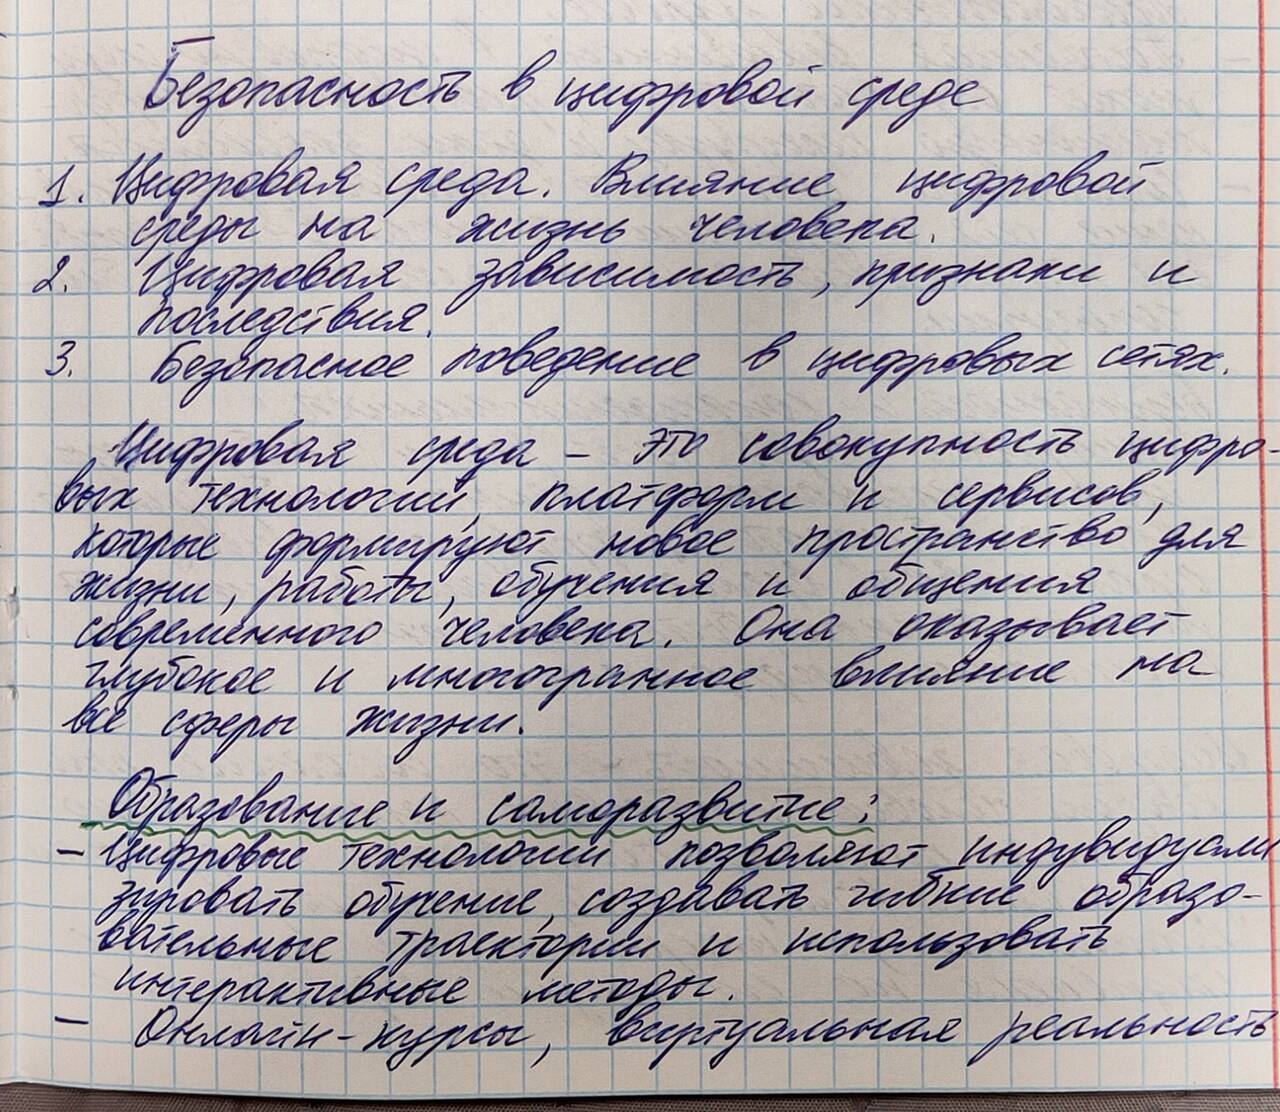 Безопасность в цифровой среде
1. Цифровая среда. Влияние цифровой
среды на жизнь человека.
2. Цифровая зависимость, признаки и
последствия.
3. Безопасное поведение в цифровых сетях.
Цифровая среда – это совокупность цифро-
вых технологий, платформ и сервисов,
которые формируют новое пространство для
жизни, работы, обучения и общения
современного человека. Она оказывает
глубокое и многогранное влияние на
все сферы жизни.
Образование и саморазвитие:
– Цифровые технологии позволяют индувидуали
зировать обучение, создавать гибкие образо-
вательные траектории и использовать
интерактивные методы.
– Онлайн-курсы, виртуальная реальность